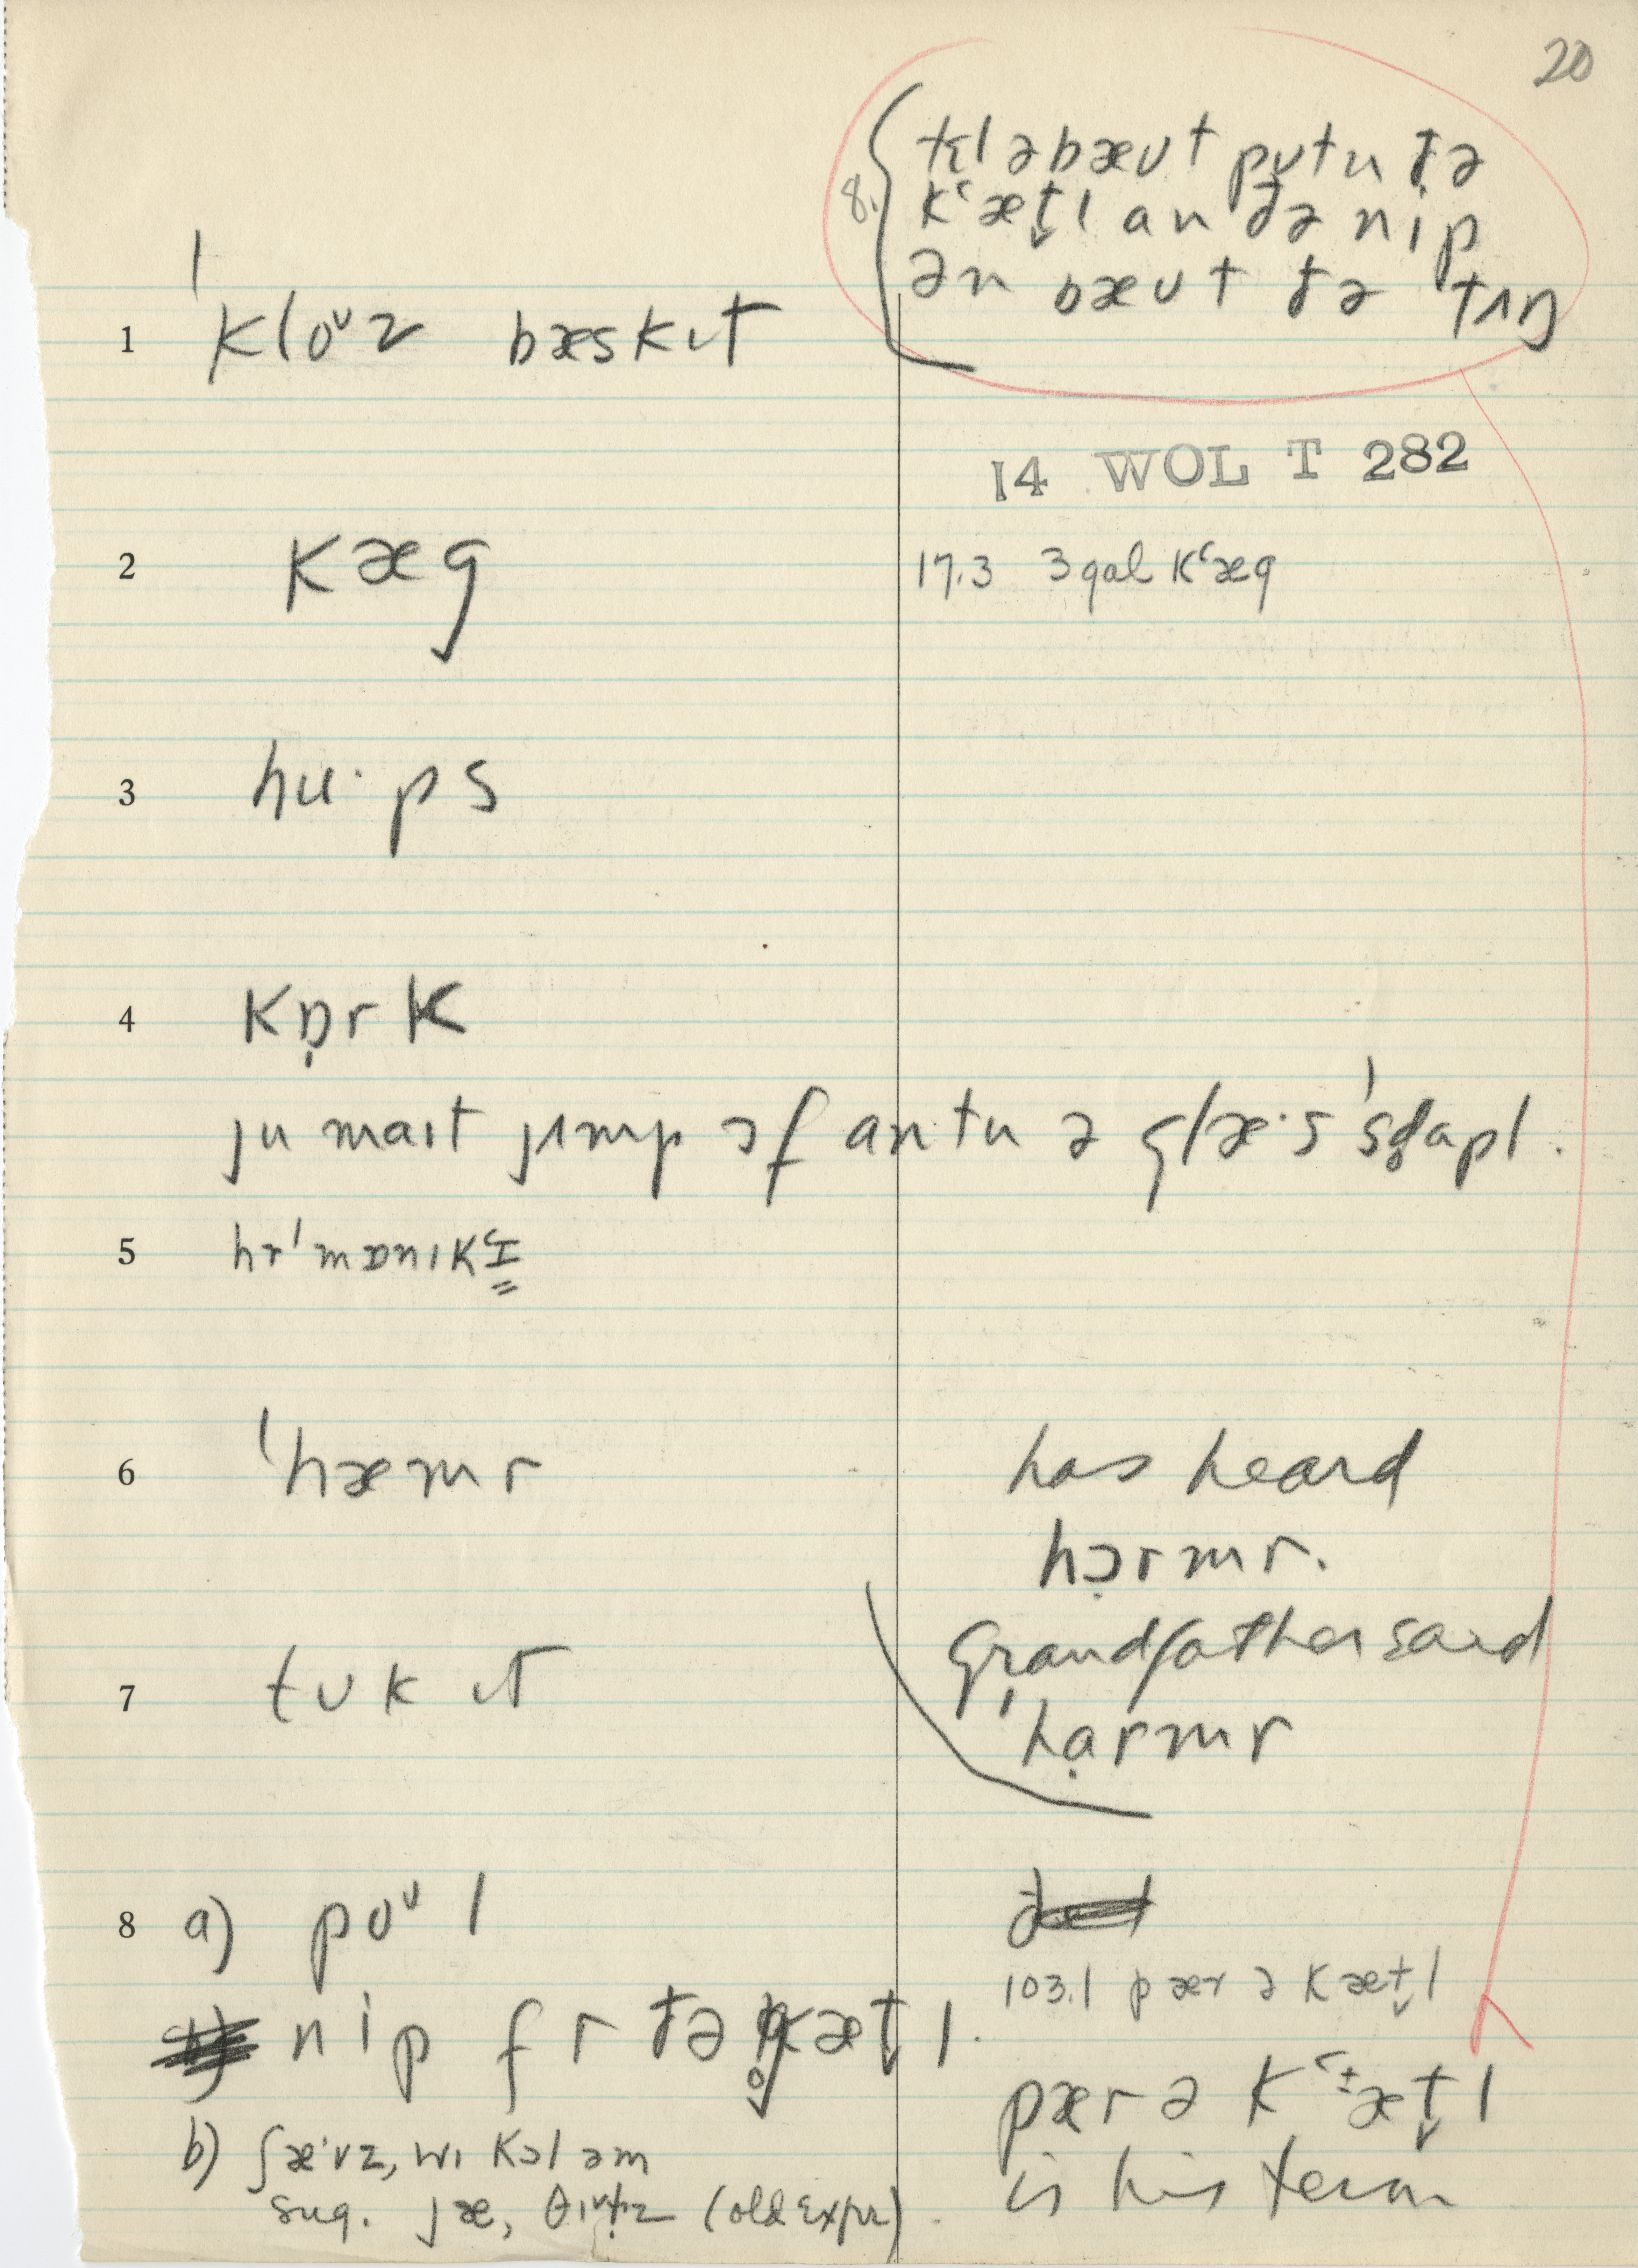 20
8. tɛl əbæʊt pʊtn ðə
kʻæt̬l an ðə nip
ən bæʊt ðə tʌŋ
1 ˈkloᶷz bæskɪt
14 WOL T 282
2 kæg
17.3 3 gal kʻæg
3 hu·ps
4 kɒ̣rk
ju maɪt ȷʌmp ɔf an tu ə glæ·s ˈsd̥apl.
5 hɚˈmɒnɪkɪ
6 ˈhæmr
has heard
hɔ̣rmr.
Grandfather said
ˈhạrmr
7 tʊkɪt
8 a) poᶷl
103.1 pær ə kæt̬l
nip fr ðə kæt̬l.
pær ə kʻæt̬l
is his term
b) ʃæ·vz, wɪ kɔl əm
sug. jæ, (old expr).